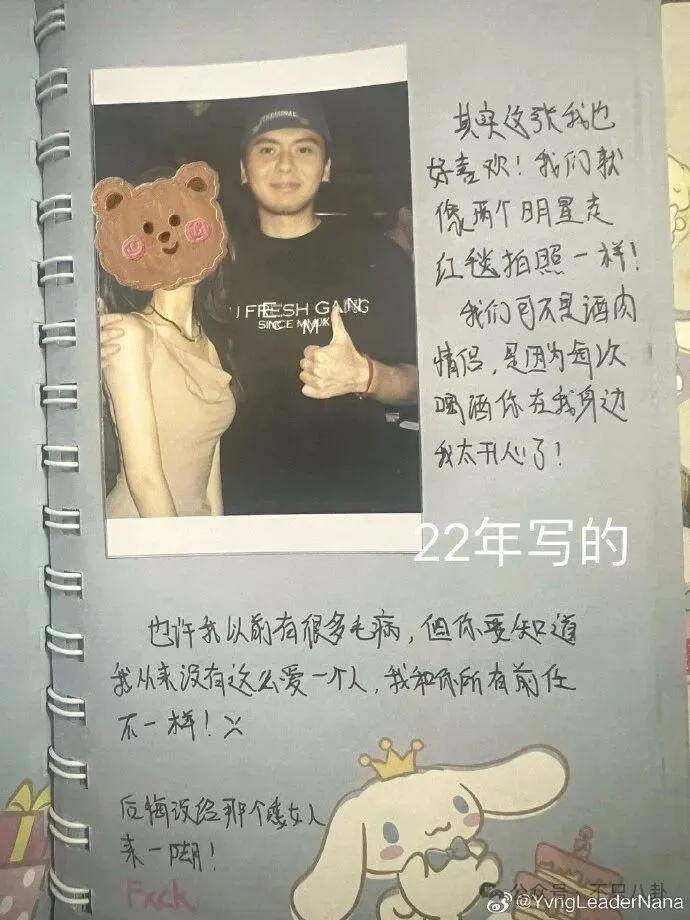 其实这张我也
好喜欢！我们就
像两个明星走
红毯拍照一样！
我们可不是酒肉
情侣，是因为每次
喝酒你在我身边
我太开心了！
FRESH GANG
SINCE MMXX
22年写的
也许我以前有很多毛病，但你要知道
我从来没有这么爱一个人，我和你所有前任
不一样！
后悔没给那个矮女人
来一脚！
Fxck
公众号：不只八卦
@YvngLeaderNana